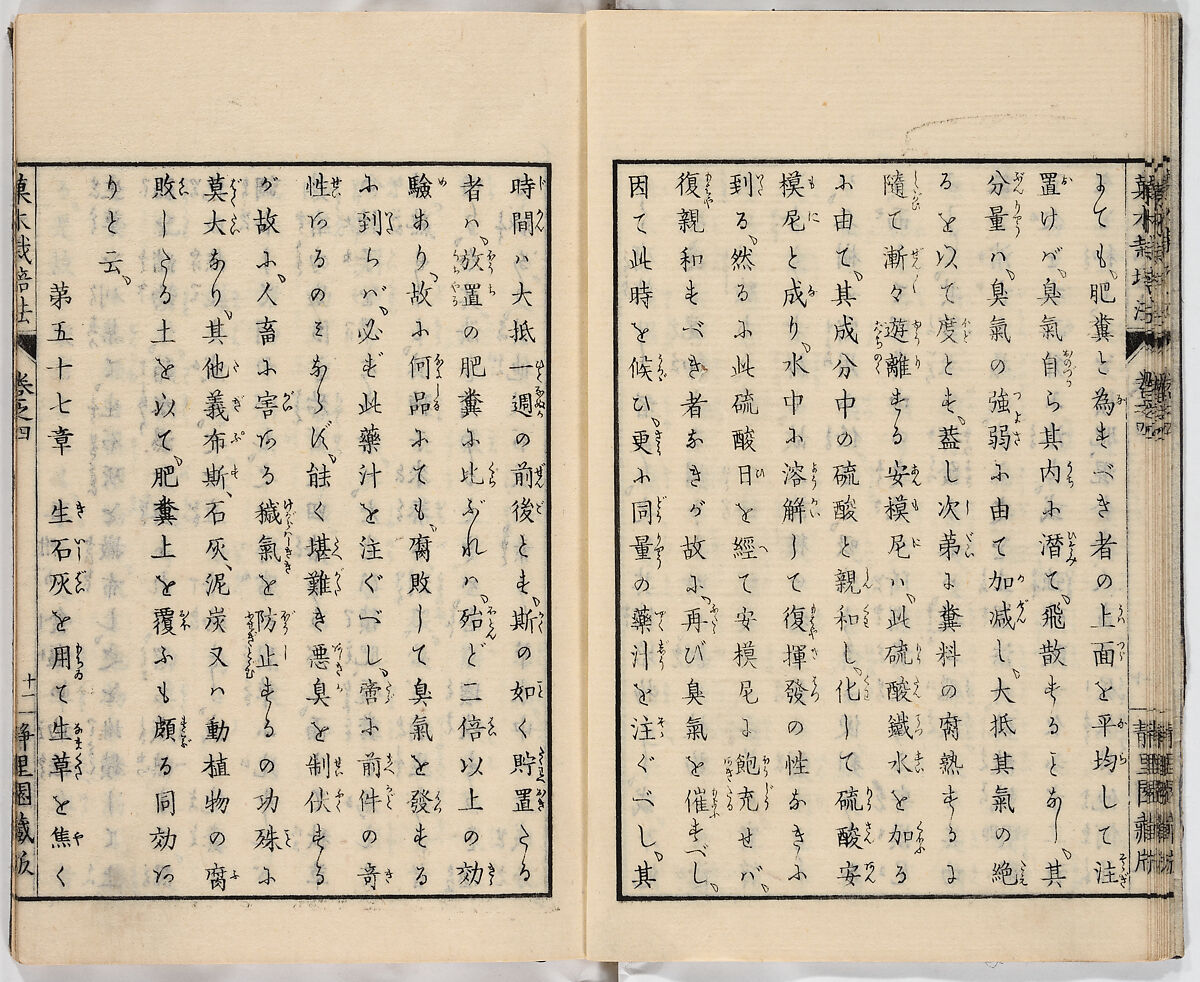 までも、肥糞と為すべき者の上面を平均して注
置けバ、臭氣自ら其内に潜て、飛散することなし、其
分量ハ、臭氣の強弱に由て加減し、大抵其氣の絶
るを以て度とす、蓋し次第に糞料の腐熟するに
隨て漸々遊離する安模尼ハ、此硫酸鐵水を加る
に由て、其成分中の硫酸と親和し、化して硫酸安
模尼と成り、水中に溶解して復揮發の性なきに
到る、然るに此硫酸日を經て安模尼に飽充せバ、
復親和すべき者なきが故に、再び臭氣を催すべし、
因て此時を候ひ、更に同量の藥汁を注ぐべし、其
時間ハ大抵一週の前後とす、斯の如く貯置たる
者ハ、放置の肥糞に比ぶれハ、殆ど二倍以上の効
驗あり、故に何品にても、腐敗して臭氣を發する
に到らバ、必ず此藥汁を注ぐべし、啻に前件の奇
性あるのミならず、能く堪難き悪臭を制伏する
が故に、人畜に害ある穢氣を防止するの功殊に
莫大なり、其他義布斯、石灰、泥炭又ハ動植物の腐
敗したる土を以て、肥糞上を覆ふも頗る同効あ
りと云、
第五十七章　生石灰を用て生草を焦く
菓木栽培法
巻之四
十二
靜里園藏版